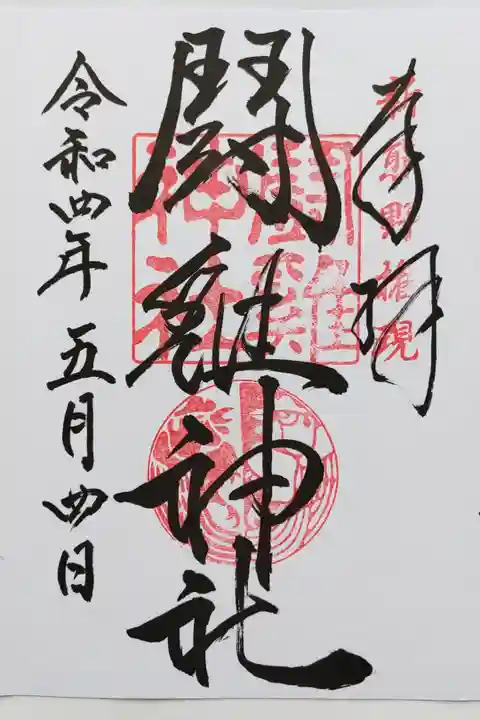 奉拝
新熊野権現
闘雞神社
闘雞神社
令和四年五月四日